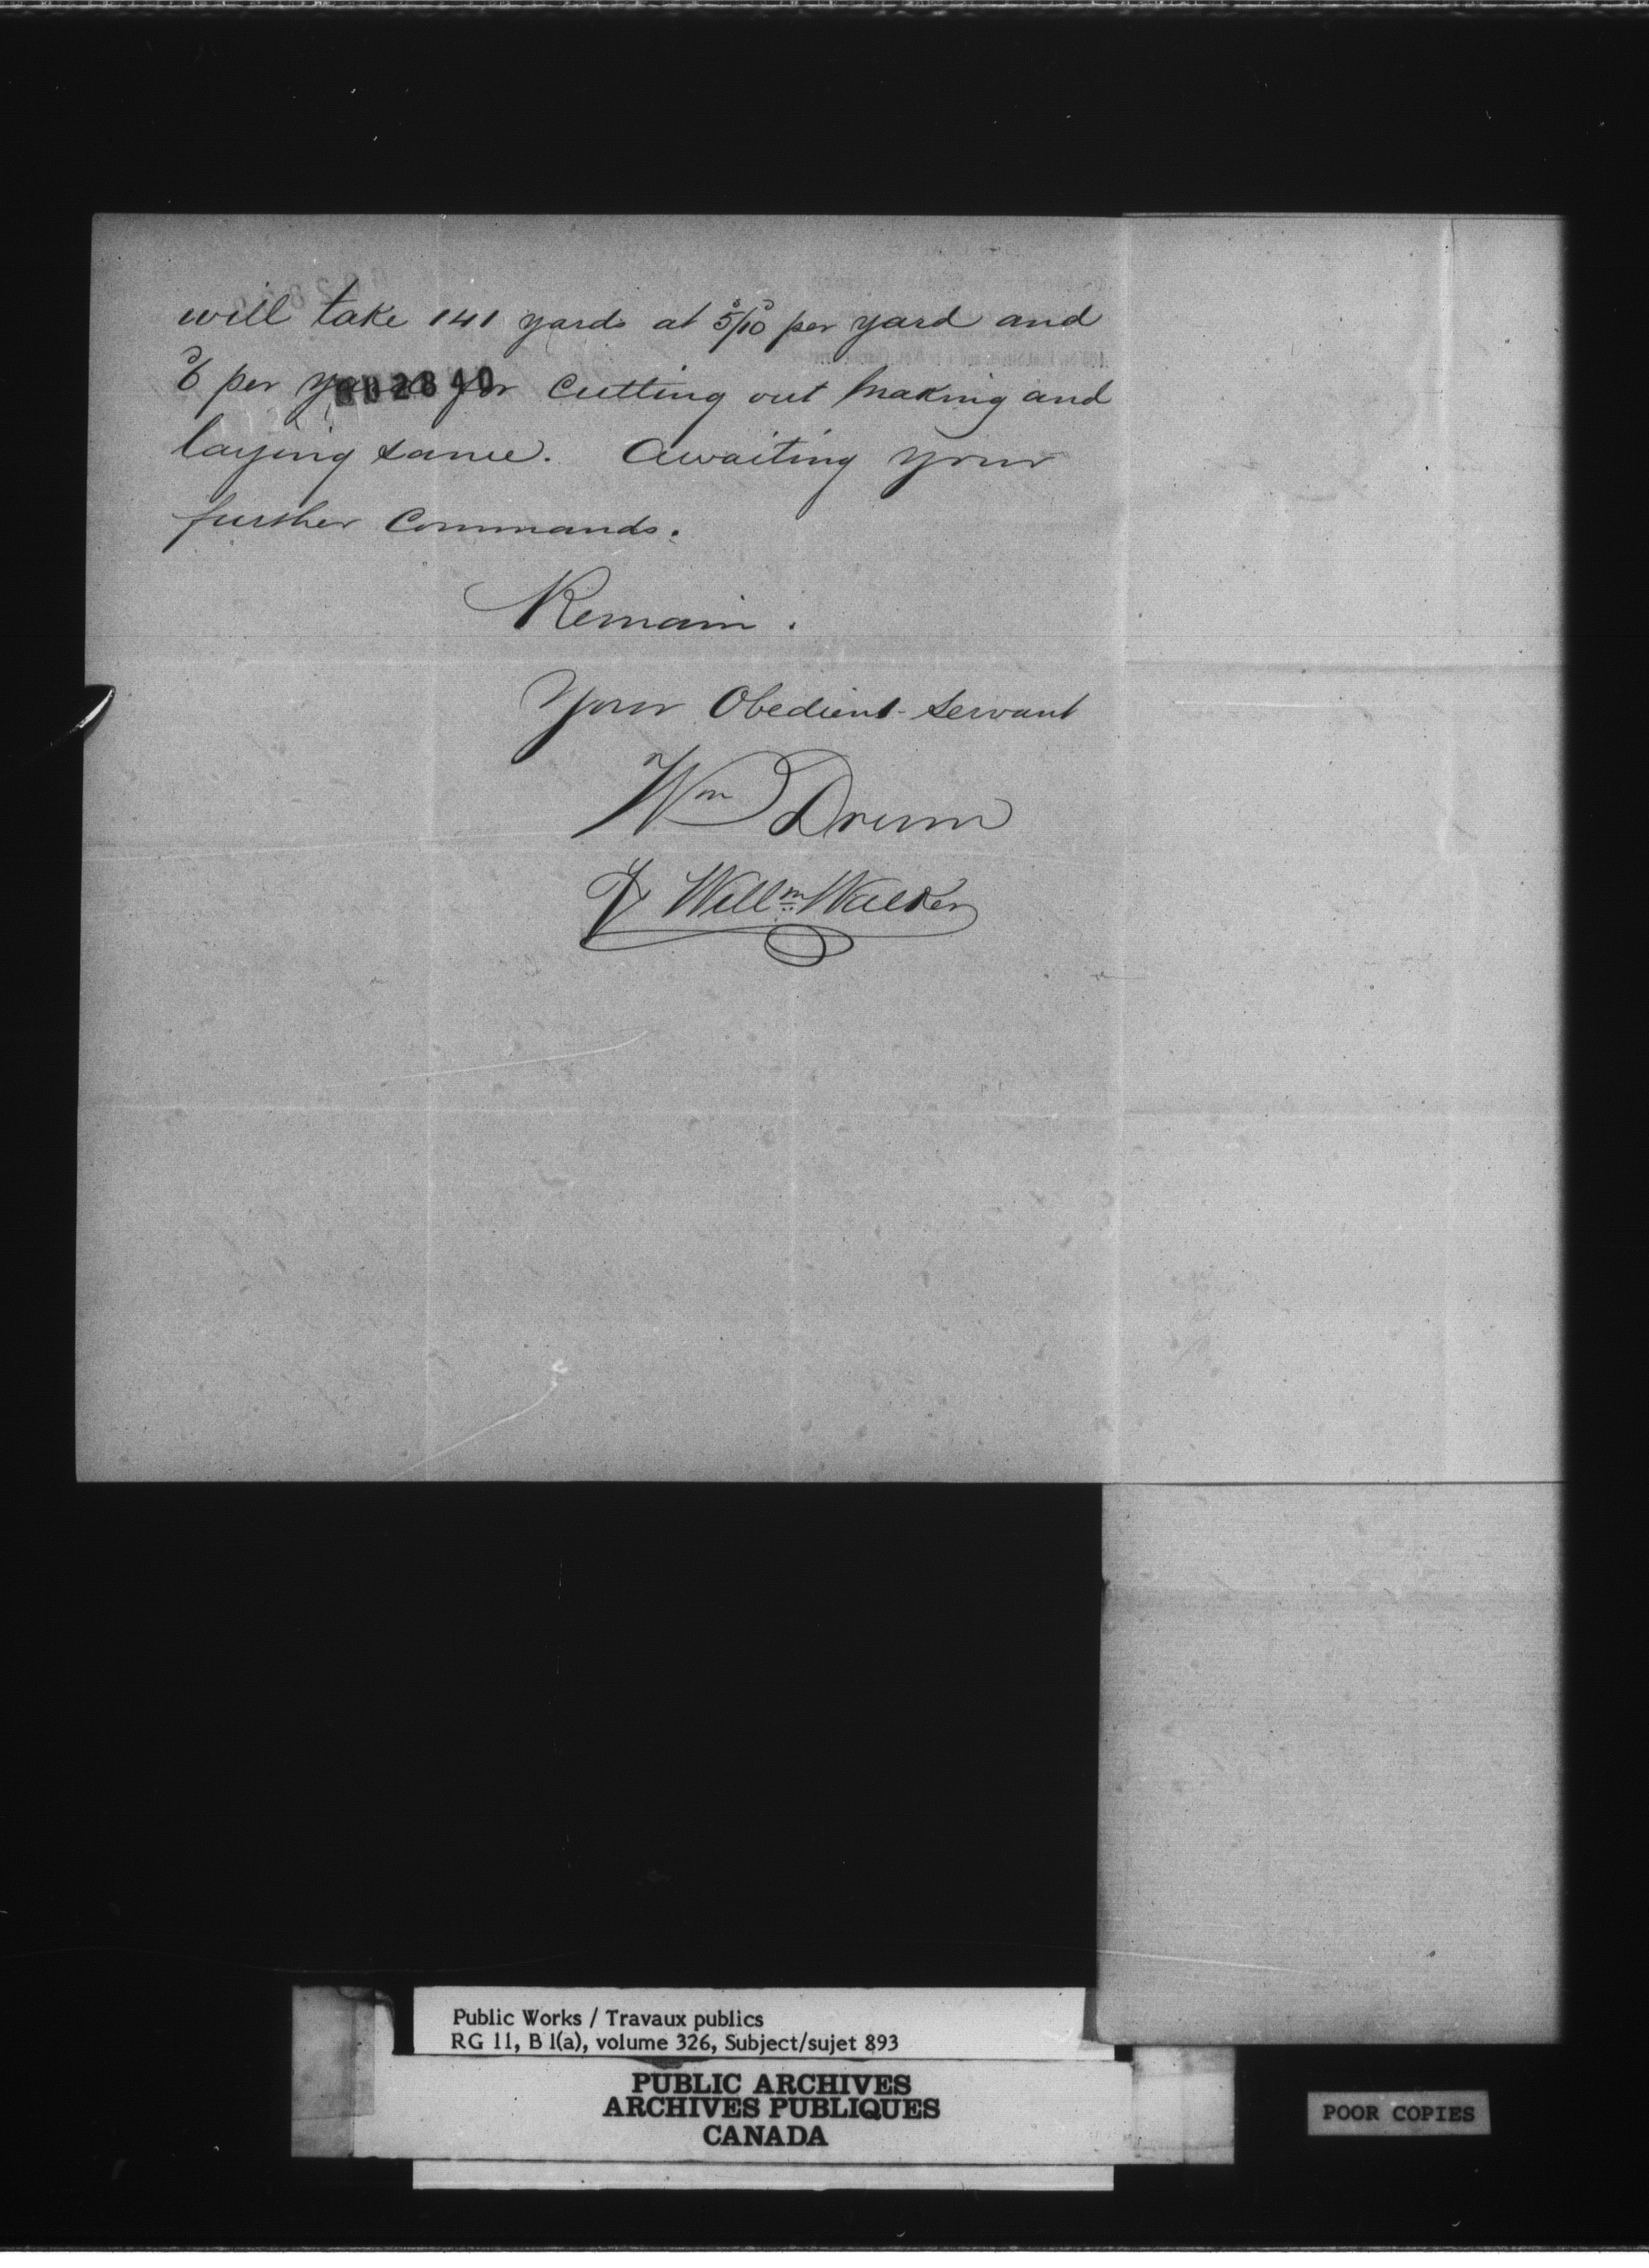 will take 141 yards at 5/10 per yard and
/6 per yard for Cutting out Making and
002840
laying same. Awaiting your
further Commands.
Remain.
Your Obedient Servant
Wm Drum
Willm Walker
Public Works / Travaux publics
RG 11, B 1(a), volume 326, Subject/sujet 893
PUBLIC ARCHIVES
ARCHIVES PUBLIQUES
CANADA
POOR COPIES